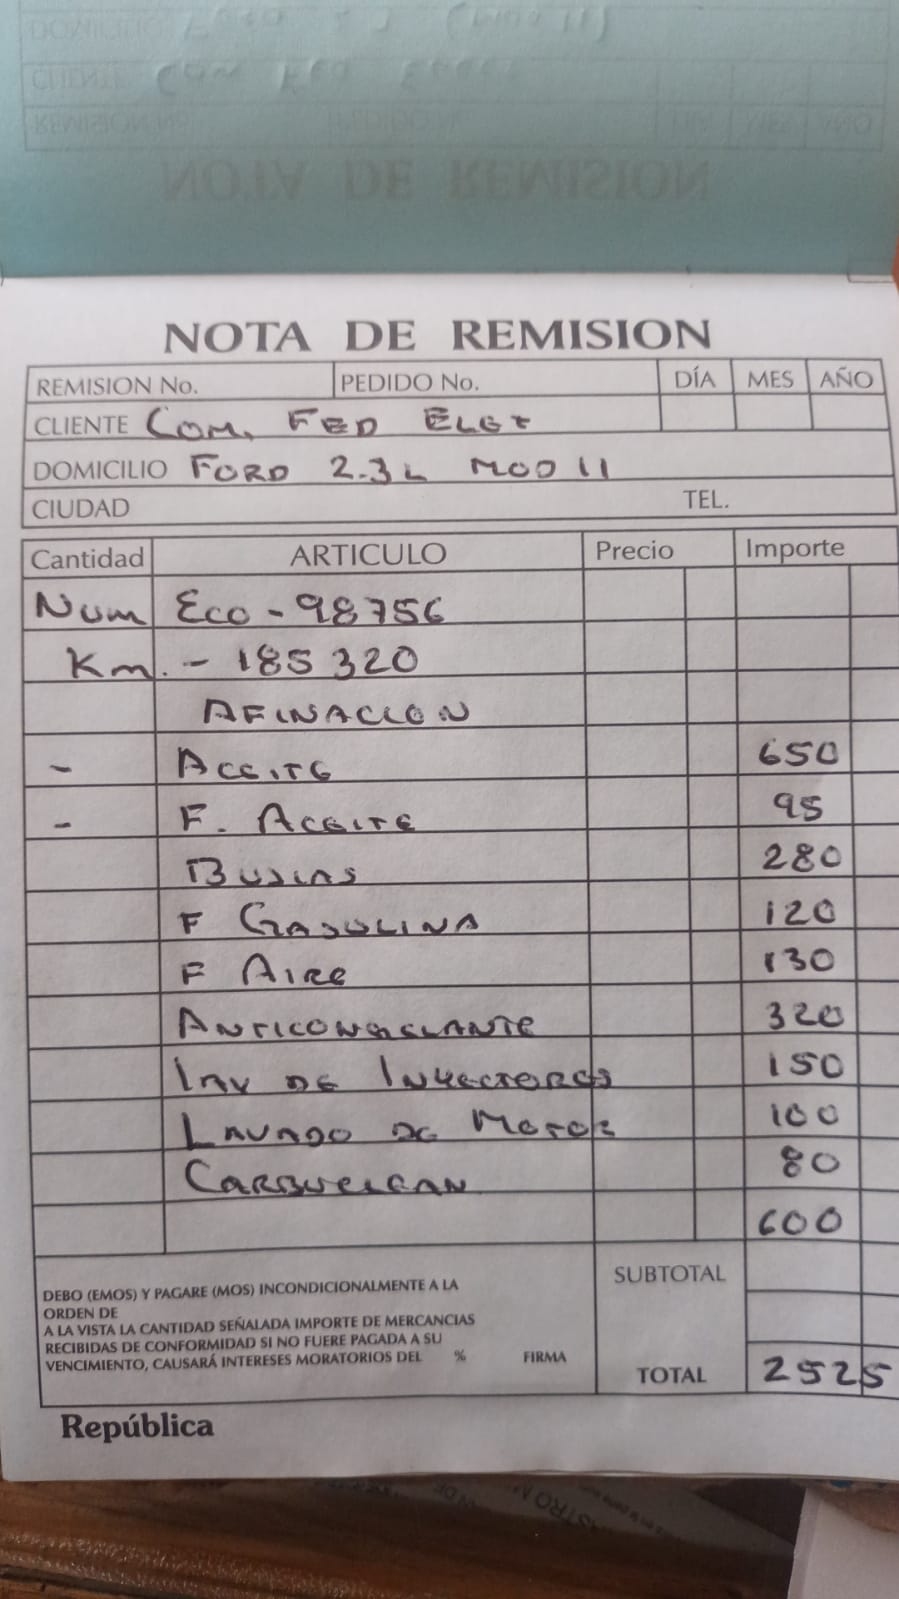 NOTA DE REMISION
REMISION No. PEDIDO No. DÍA MES AÑO
CLIENTE Com. FED ELET
DOMICILIO FORD 2.3L MOD 11
CIUDAD TEL.
Cantidad ARTICULO Precio Importe
Num Eco - 98756
Km. - 185320
AFINACION
- ACEITE 650
- F. ACEITE 95
BUJIAS 280
F GASOLINA 120
F AIRE 130
ANTICONGELANTE 320
LAV DE INYECTORES 150
LAVADO DE MOTOR 100
CARBUCLEAN 80
600
DEBO (EMOS) Y PAGARE (MOS) INCONDICIONALMENTE A LA
ORDEN DE
A LA VISTA LA CANTIDAD SEÑALADA IMPORTE DE MERCANCIAS
RECIBIDAS DE CONFORMIDAD SI NO FUERE PAGADA A SU
VENCIMIENTO, CAUSARÁ INTERESES MORATORIOS DEL % FIRMA
SUBTOTAL
TOTAL 2525
República